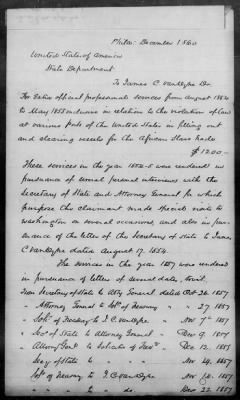 Phila: December 1860
United States of America
State Department
To James C. VanDyke Dr
For Extra official professional services from August 1854
to May 1858 inclusive in relation to the violation of law
at various Ports of the United States in fitting out
and clearing vessels for the African Slave trade
$1200.—
These services in the year 1854-5 was rendered in
pursuance of several personal interviews with the
Secretary of State and Attorney General for which
purpose the claimant made special visits to
Washington on several occasions, and also in pur-
suance of the letter of the Secretary of State to James
C VanDyke dated August 17. 1854.
The services in the year 1857 were rendered
in pursuance of letters of several dates, to wit,
From Secretary of State to Atty Genl dated Oct 26 1857
" Attorney General to Solr of Treasury " " 27 1857
" Solr of Treasury to J. C. VanDyke Nov 7th 1857
" Secy of State to Attorney General " Nov 9. 1857
" Attorney Genl to Solicitor of Treasy Dec 12 1857
" Secy of State " " " Nov 14, 1857
" Solr of Treasury to J C VanDyke Nov 1857
" " " do Dec 22 1857